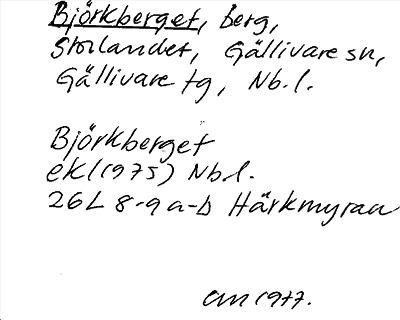 Björkberget, berg,
Storlandet, Gällivare sn,
Gällivare tg, Nb. l.
Björkberget
ek (1975) Nb. l.
26L 8-9 a-b Härkmyran
am 1977.